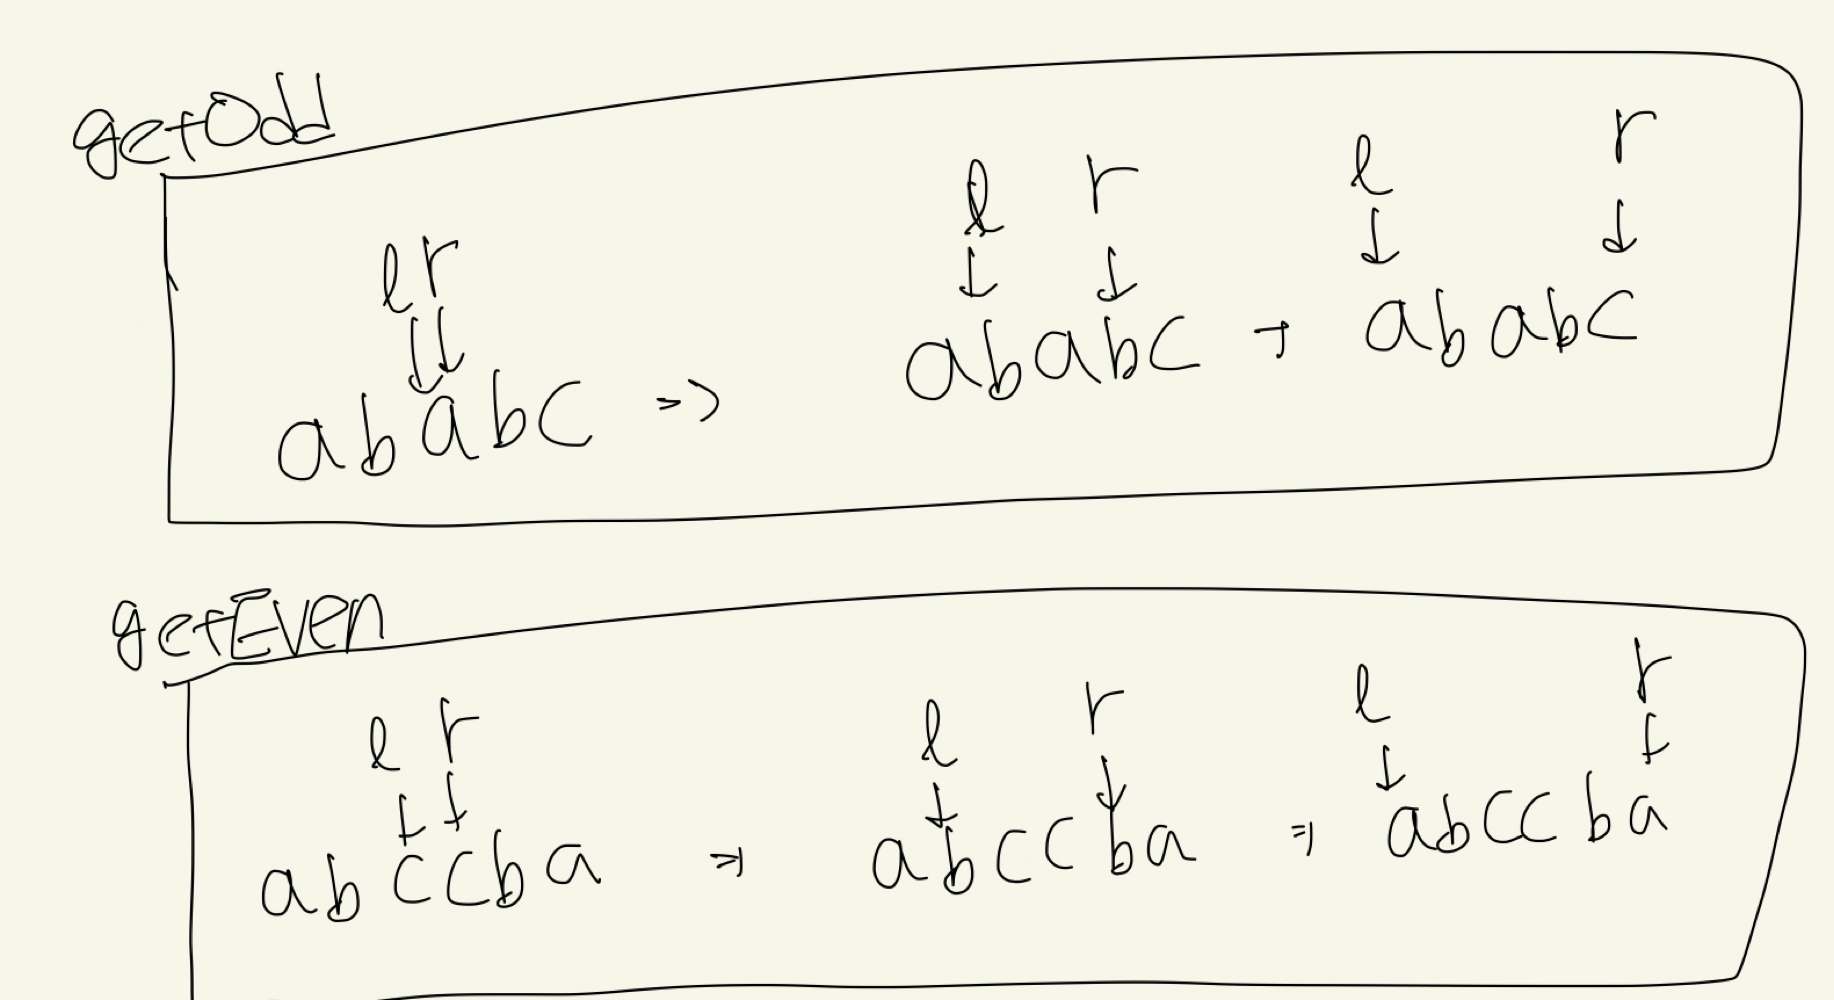 getOdd
l r l r l r
ababc => ababc → ababc
getEven
l r l r l r
abccba => abccba => abccba